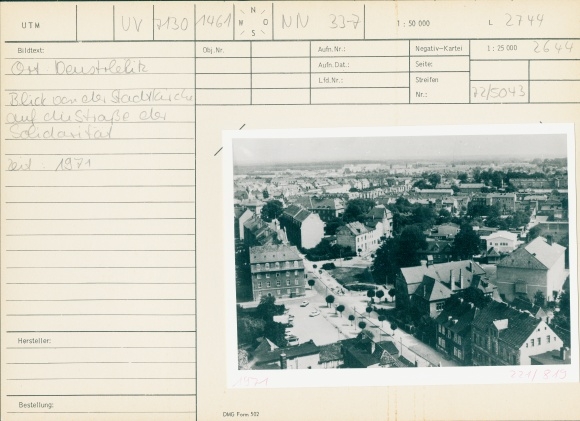 UTM UV 7130 1461 N W O S NN 33-7 1 : 50 000 L 2744
Bildtext: Obj. Nr. Aufn. Nr.: Negativ-Kartei 1 : 25 000 2644
Ort Neustrelitz Aufn. Dat.: Seite:
Lfd. Nr.: Streifen
Blick von der Stadtkirche Nr.: 72/5043
auf die Straße der
Solidarität
Zeit: 1971
Hersteller:
Bestellung:
1971 221/819
DMG Form. 102